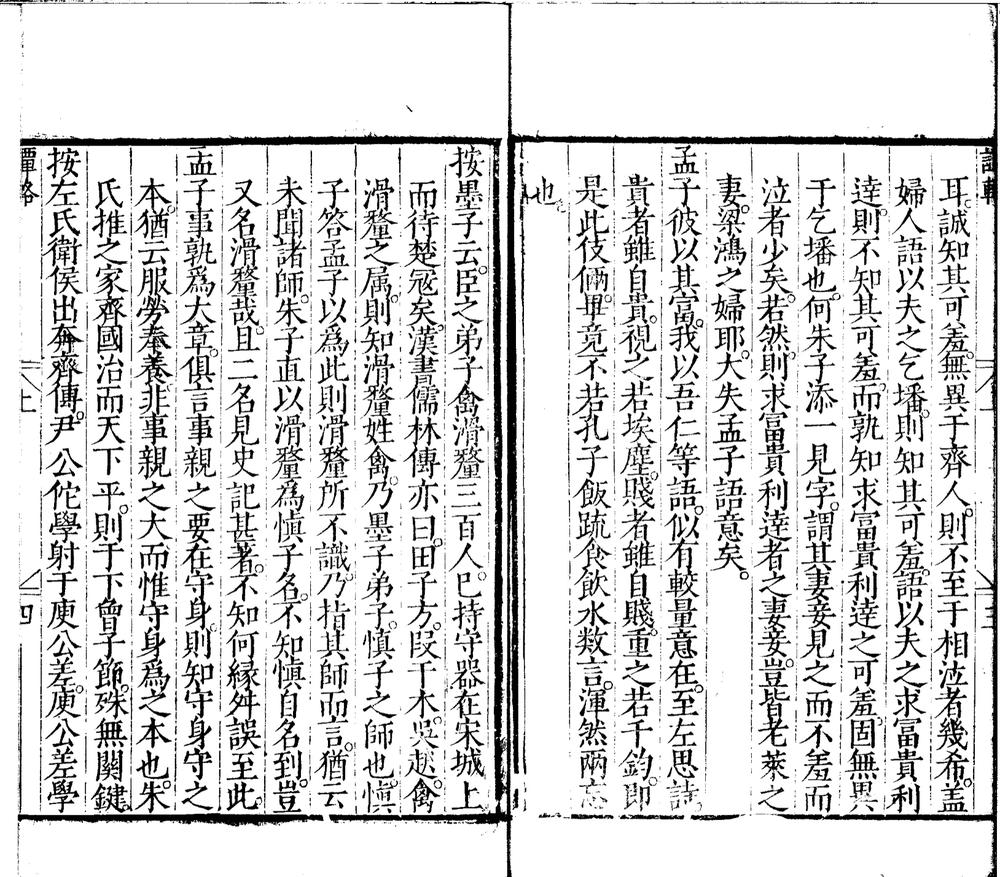 耳。誠知其可羞。無異于齊人。則不至于相泣者幾希。蓋
婦人語以夫之乞墦。則知其可羞。語以夫之求冨貴利
達。則不知其可羞。而孰知求冨貴利達之可羞。固無異
于乞墦也。何朱子添一見字。謂其妻妾見之而不羞而
泣者少矣。若然。則求冨貴利達者之妻妾。豈皆老萊之
妻。梁鴻之婦耶。大失孟子語意矣。
孟子彼以其富。我以吾仁等語。似有較量意在。至左思詩。
貴者雖自貴。視之若埃塵。賤者雖自賤。重之若千鈞。即
是此伎倆。畢竟不若孔子飯疏食飲水数言。渾然兩忘
也。
按墨子云。臣之弟子禽滑釐三百人。巳持守器在宋城上
而待楚冦矣。漢書儒林傳亦曰。田子方。叚干木。吳起。禽
滑釐之属。則知滑釐姓禽。乃墨子弟子。慎子之師也。慎
子答孟子以爲此則滑釐所不識。乃指其師而言。猶云
未聞諸師。朱子直以滑釐爲慎子名。不知慎自名到。豈
又名滑釐哉。且二名見史記甚著。不知何縁舛誤至此。
孟子事孰爲大章。俱言事親之要在守身。則知守身守之
本。猶云服勞奉養。非事親之大而惟守身爲之本也。朱
氏推之家齊國治而天下平。則于下曾子節。殊無關鍵
按左氏衛侯出奔齊傳。尹公佗學射于庾公差。庾公差學
譚輅
上
四